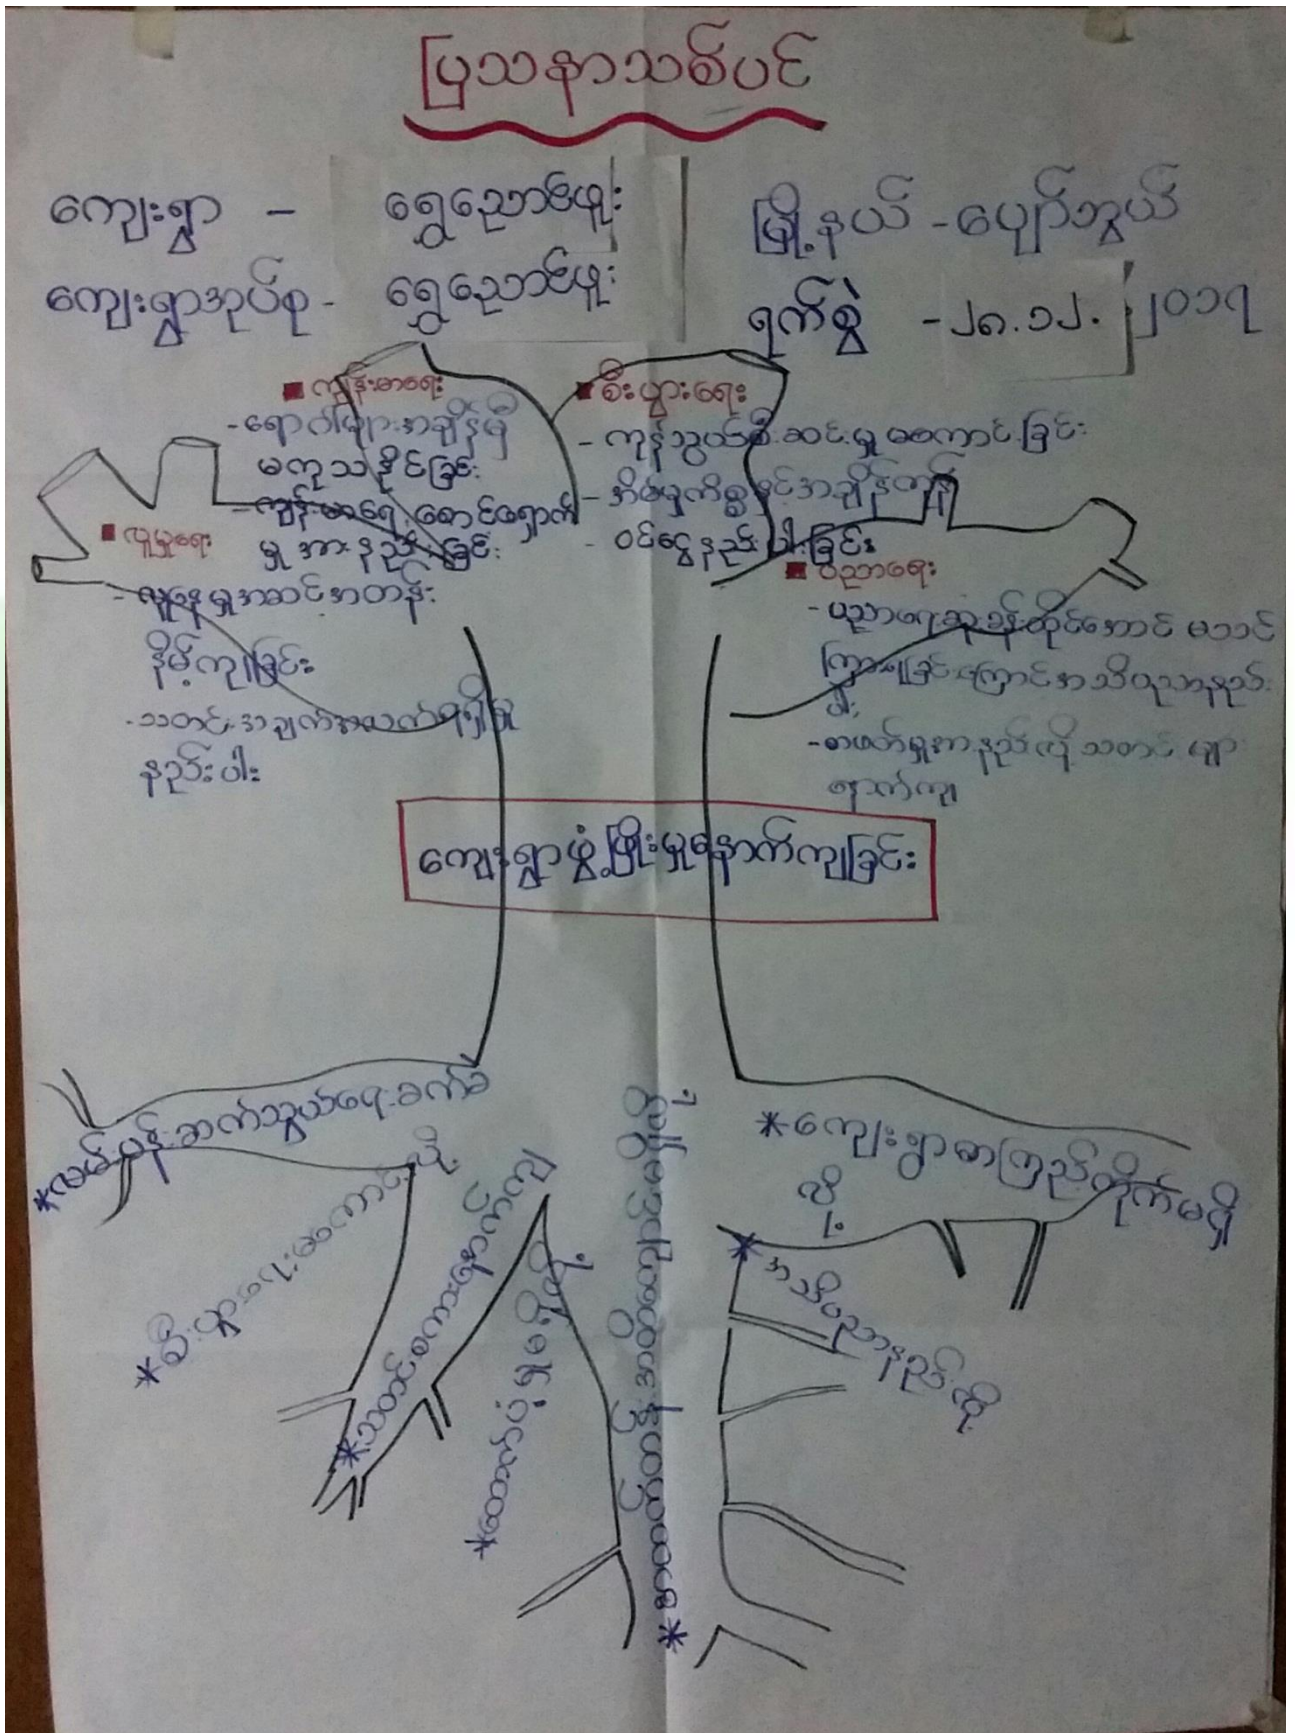 ပြဿနာသစ်ပင်
ကျေးရွာ - ရွှေညောင်ဖူး
မြို့နယ် - ပျော်ဘွယ်
ကျေးရွာအုပ်စု - ရွှေညောင်ဖူး
ရက်စွဲ - ၂၈.၁၂.၂၀၁၇
ကျန်းမာရေး
- ရောဂါများအချိန်မှီ
မကုသနိုင်ခြင်း
- ကျန်းမာရေးစောင့်ရှောက်
မှုအားနည်းခြင်း
စီးပွားရေး
- ကုန်သွယ်စီးဆင်းမှုမကောင်းခြင်း
- အိမ်မှုကိစ္စနှင့်အချိန်ကုန်
- ဝင်ငွေနည်းပါးခြင်း
လူမှုရေး
- လူနေမှုအဆင့်အတန်း
နိမ့်ကျခြင်း
- သတင်းအချက်အလက်ရရှိမှု
နည်းပါး
ပညာရေး
- ပညာရေးဆုံးခန်းတိုင်အောင် မသင်
ကြားရခြင်းကြောင့်အသိပညာနည်း
ပါး
- စာဖတ်မှုအားနည်းလို့ သတင်းများ
နောက်ကျ
ကျေးရွာဖွံ့ဖြိုးမှုနောက်ကျခြင်း
*လမ်းပန်းဆက်သွယ်ရေးခက်ခဲ
*စီးပွားရေးမကောင်းလို့
*သတင်းစကားနောက်ကျ
*ထောက်ပံ့မှုမရှိလို့
*ကျေးရွာစာကြည့်တိုက်မရှိ
လို့
*အသိပညာနည်းလို့